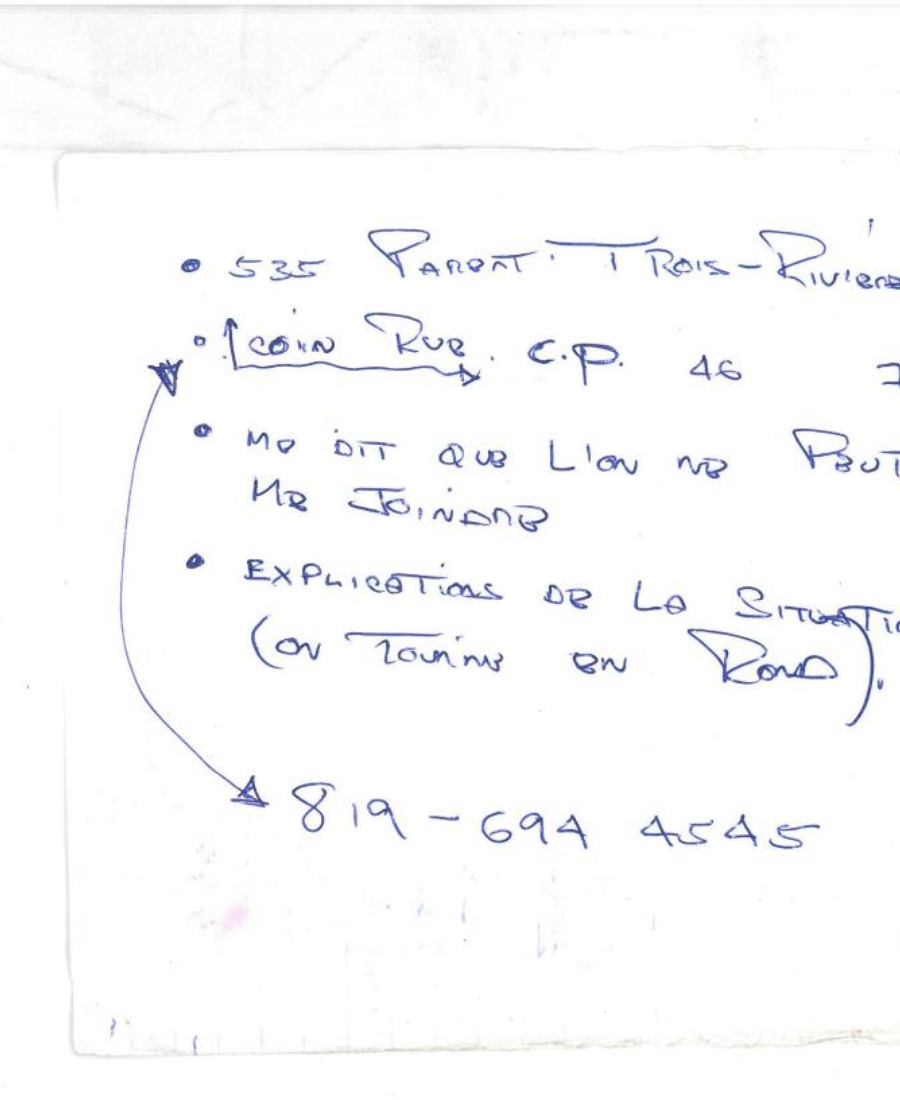 • 535 PARENT. TROIS-RIVIÈRE
• COIN RUE. C.P. 46
• ME DIT QUE L'ON NE PEUT
ME JOINDRE
• EXPLICATIONS DE LA SITUATIO
(ON TOURNE EN ROND).
819-694 4545